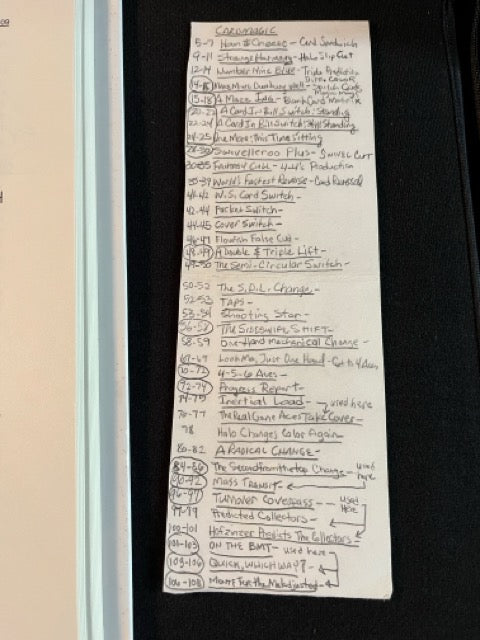 CARDMAGIC
5-7 Ham & Cheese - Card Sandwich
9-11 Strange Harmony - Halo Slip Cut
12-14 Number Nine Blue - Triple Prediction
15-18 A Maco Idea - Blank Card
20-22 A Card In Bill Switch: Standing
22-24 A Card In Bill Switch: Still Standing
24-25 One More: This Time Sitting
28-30 Swivelleroo Plus - Swivel Cut
30-35 Fantasy Call - 4-4's Production
35-39 World's Fastest Reverse - Card Reversal
41-42 W.S. Card Switch -
42-44 Packet Switch -
44-45 Cover Switch -
46-47 Flourish False Cut -
48-49 A Double & Triple Lift -
49-50 The Semi-Circular Switch -
50-52 The S.D.L. Change -
52-53 TAPS -
53-54 Shooting Star -
56-58 THE SIDESWIPE SHIFT -
58-59 One-Hand Mechanical Change -
67-69 Look Ma, Just One Hand - Cut to 4 Aces
70-72 4-5-6 Aces -
72-74 Progress Report -
74-75 Inertial Load - used here
76-77 The Real Gone Aces Take Cover -
78 Halo Changes Color Again -
80-82 A RADICAL CHANGE -
84-86 The Second from the top Change - used here
90-92 MASS TRANSIT -
96-97 Turnover Coverpass - used Here
97-99 Predicted Collectors -
100-101 Hofzinser Predicts The Collectors -
101-103 ON THE BMT - used here
103-106 QUICK, WHICH WAY? -
106-108 for the